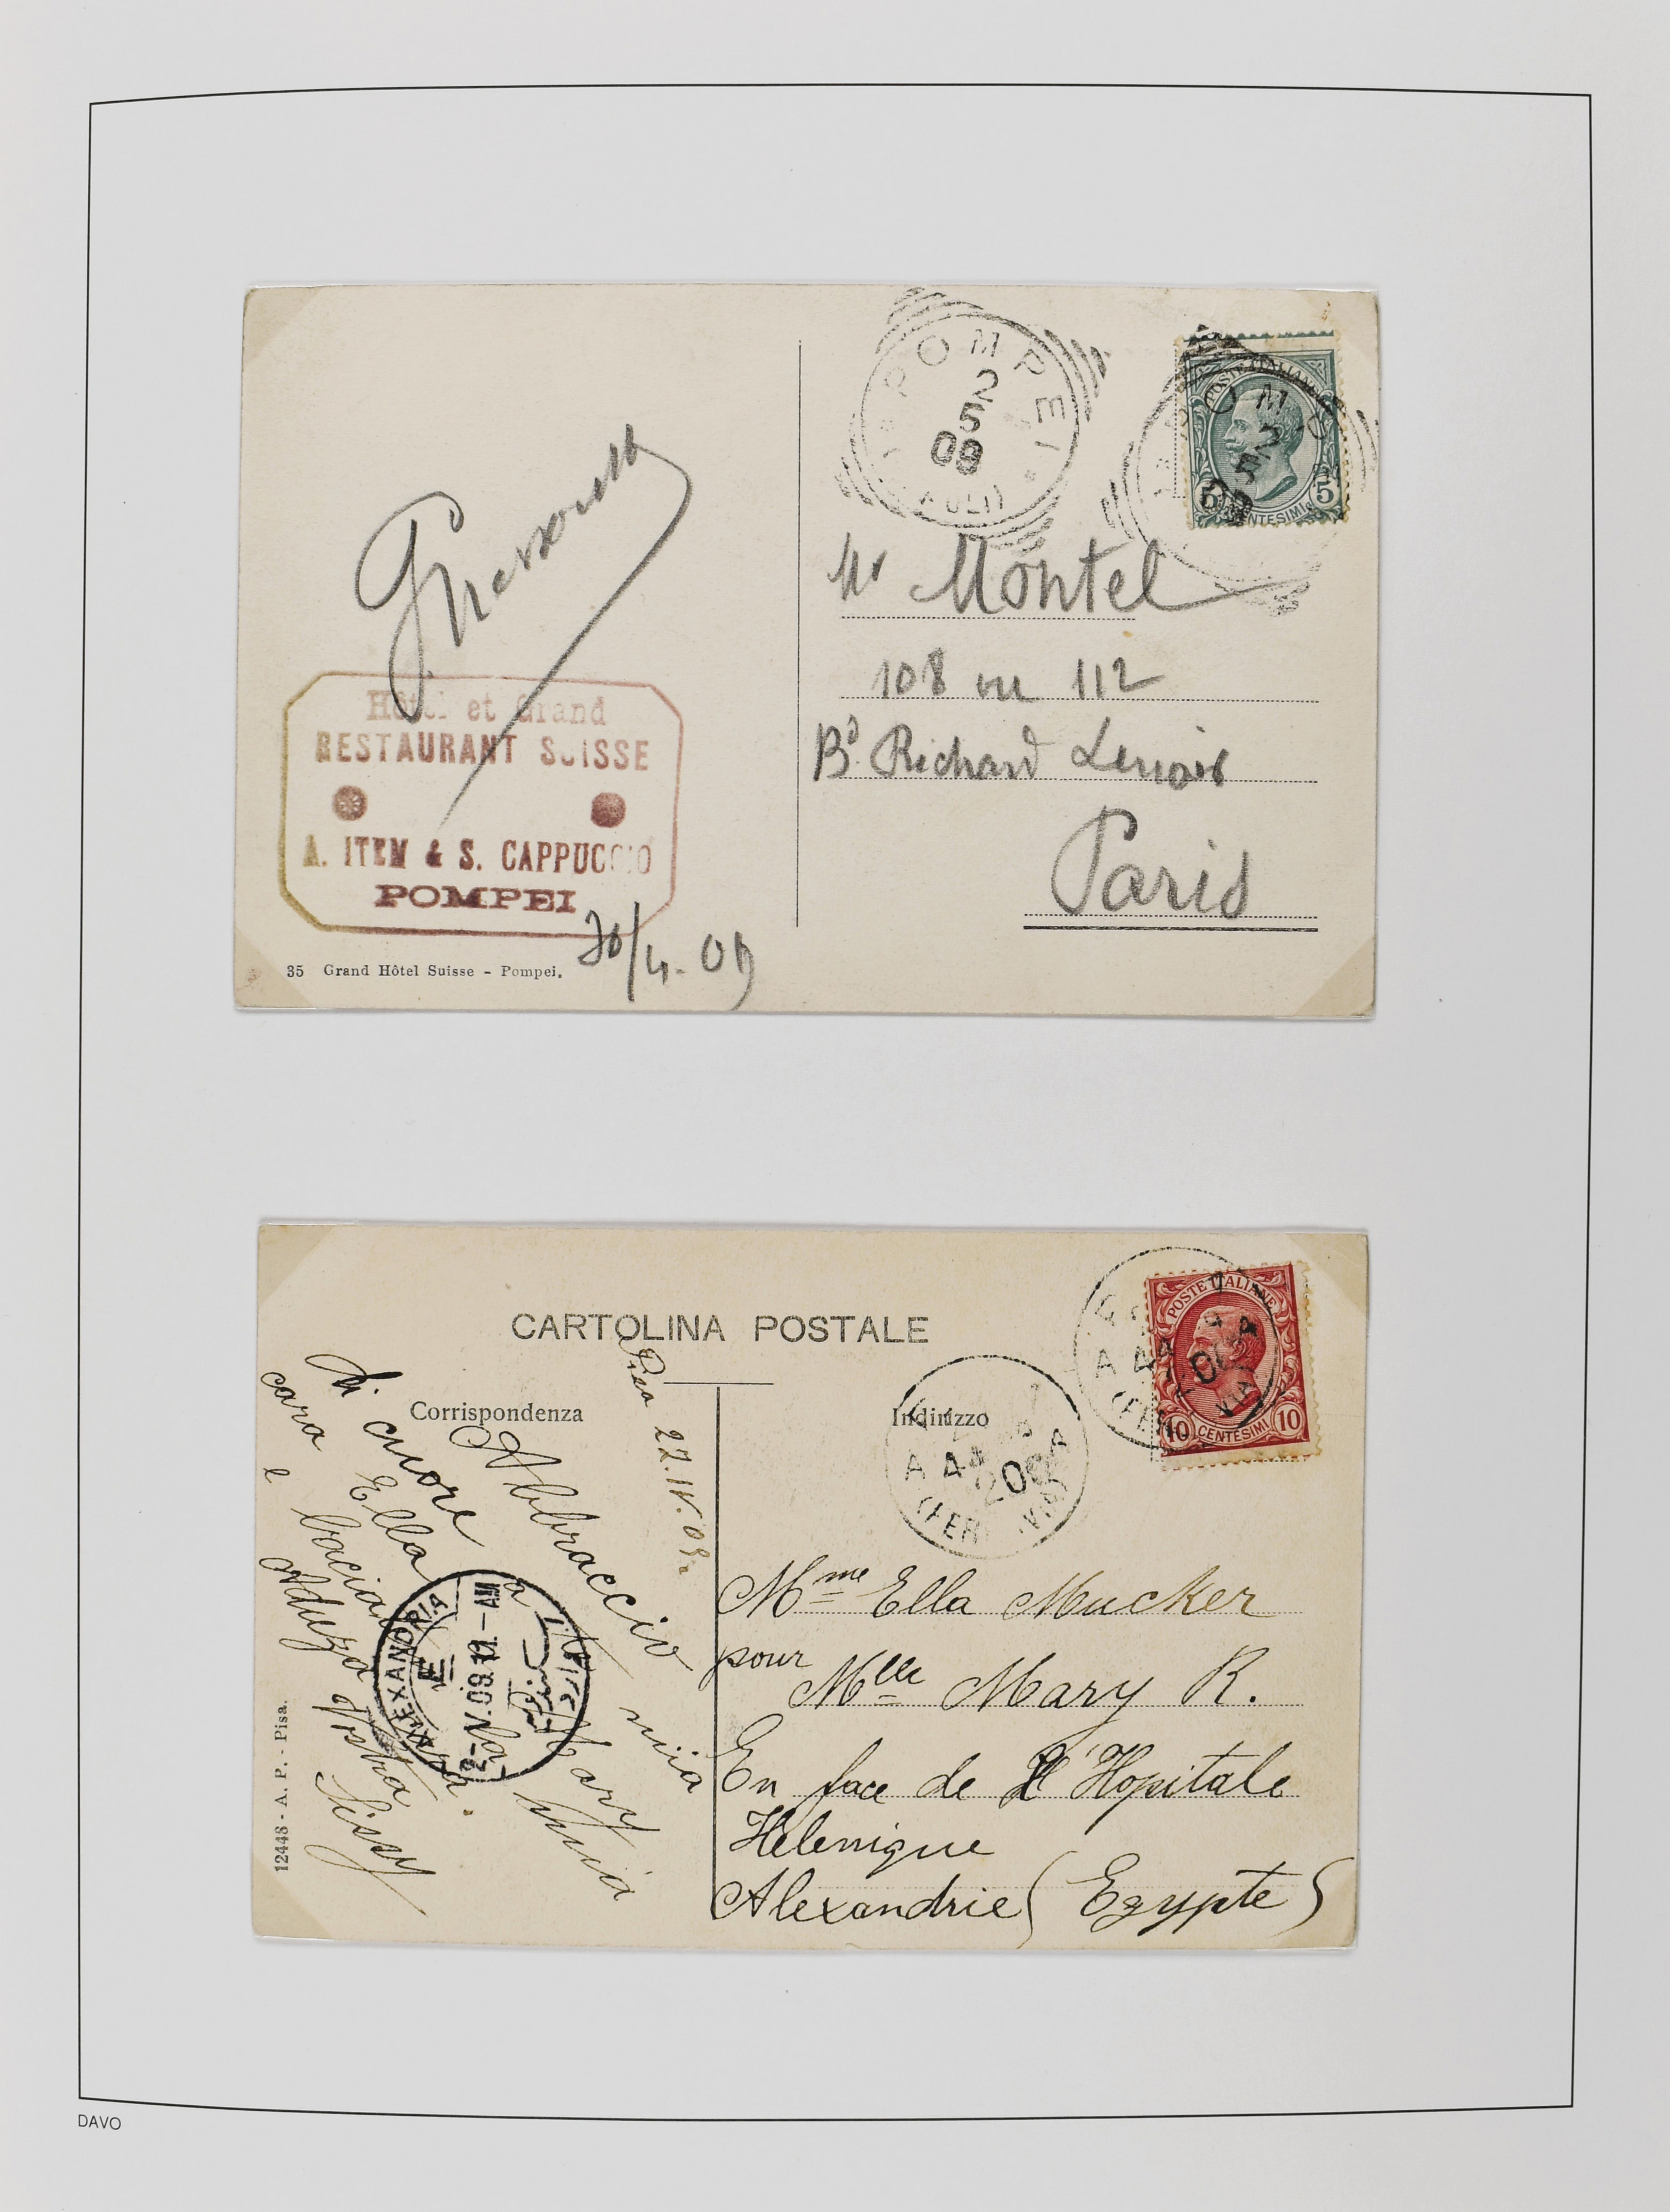 POMPEI
2
5
09
POSTE ITALIANE
5 CENTESIMI 5
Mr Montel
108 ou 112
Bd. Richard Lenoir
Paris
Hôtel et Grand
RESTAURANT SUISSE
A. ITEM & S. CAPPUCCIO
POMPEI
30/4. 09
35 Grand Hôtel Suisse - Pompei.
CARTOLINA POSTALE
Corrispondenza
Indirizzo
POSTE ITALIANE
10 CENTESIMI 10
Pisa 27.IV.09
Abbraccio
mia
Mary
di cuore
cara Ella
e
Vostra
Sissy
ALEXANDRIA
2-V.09.11.-AM
Mme Ella Mucker
pour
Mlle Mary R.
En face de l'Hopitale
Helenique
Alexandrie (Egypte)
12448 - A. P. - Pisa.
DAVO